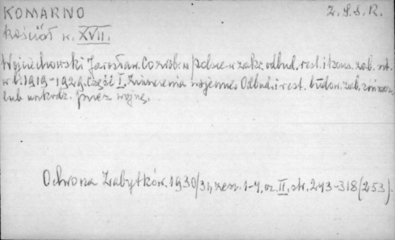 KOMARNO
Z.S.S.R.
Kościół w. XVII.
Wojciechowski Jarosław. Co zrob. w Polsce w zakr. odbud. rest. i kons. zab. szt.
w l. 1919-1929. Część I. Zniszczenia wojenne. Odbud. i rest. budow. zab. zniszcz.
lub uszkodz. przez wojnę.
Ochrona Zabytków. 1930/31, zesz. 1-4, cz. II, str. 243-318 (253).